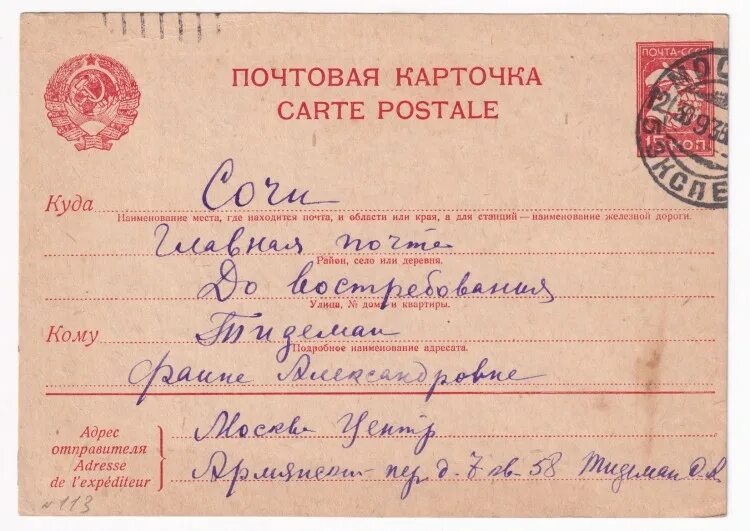 ПОЧТОВАЯ КАРТОЧКА
CARTE POSTALE
ПОЧТА-СССР
15 КОП
Куда Сочи
Наименование места, где находится почта, и области или края, а для станций — наименование железной дороги.
Главная почта
Район, село или деревня.
До востребования
Улица, № дома и квартиры.
Кому Тидеман
Подробное наименование адресата.
Фаине Александровне
Адрес отправителя
Adresse de l'expéditeur
Москва Центр
Армянский пер. д. 7 кв. 58 Тидеман
№113